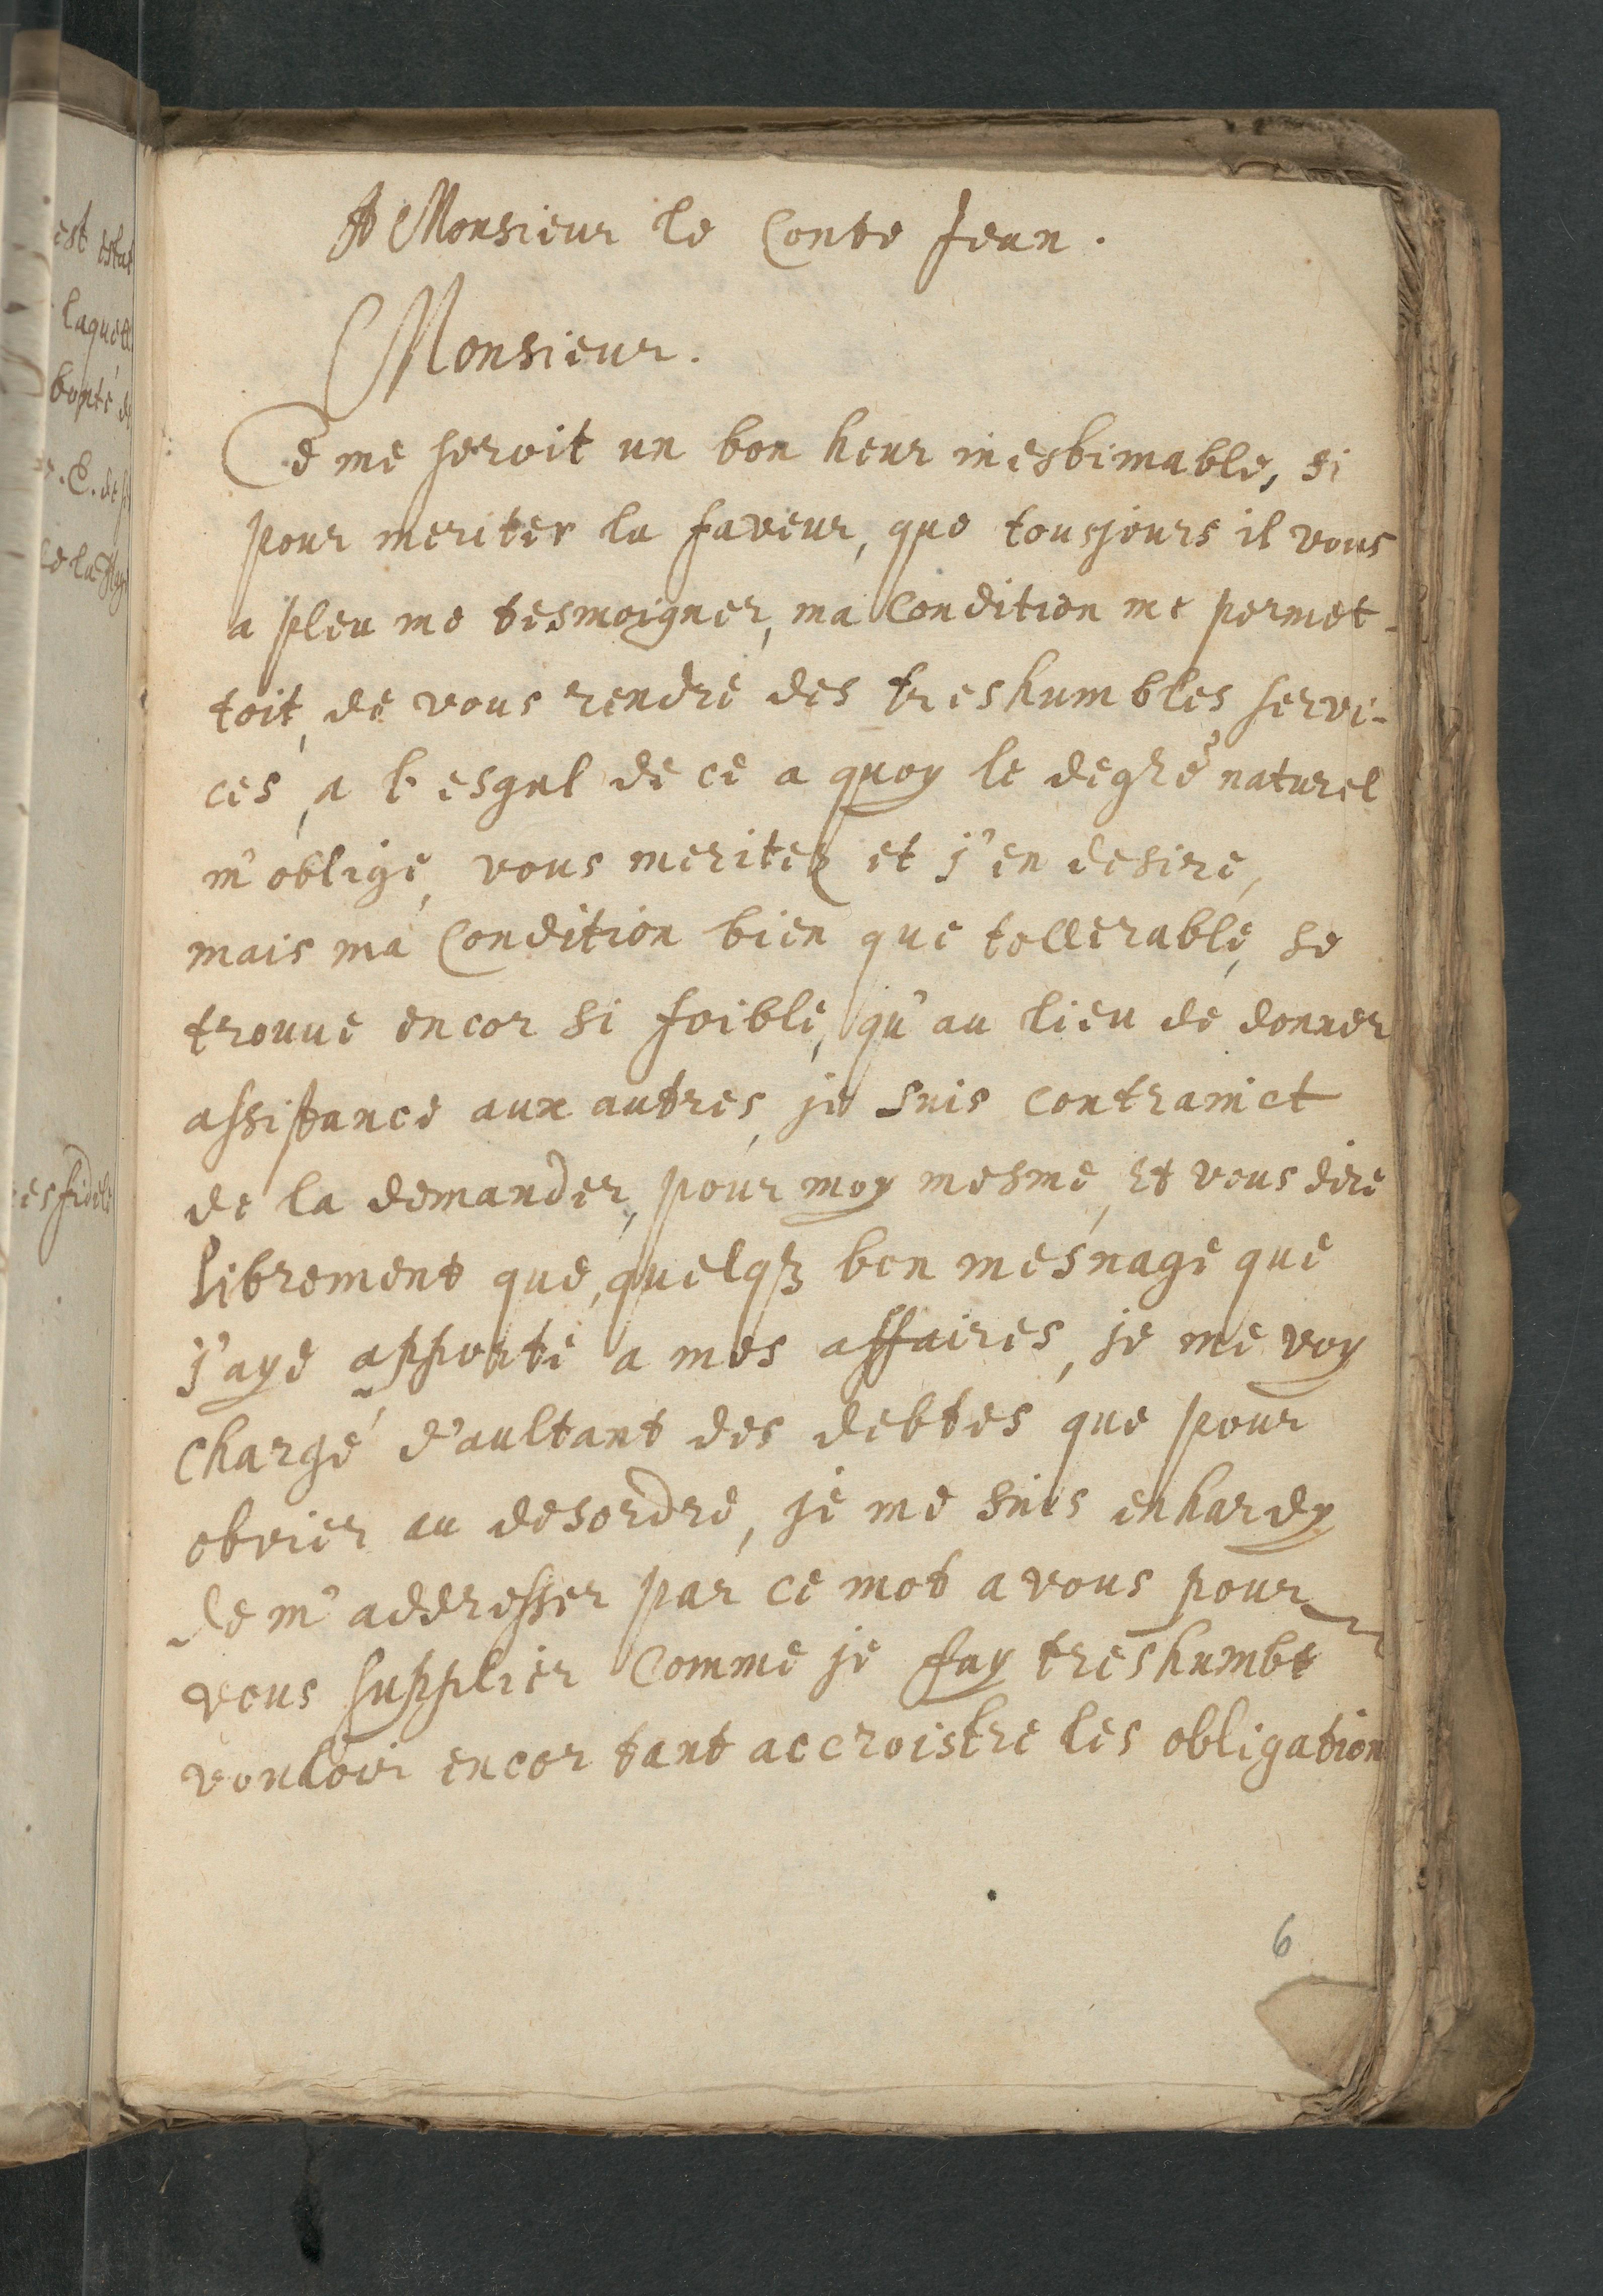 A Monsieur le Conte Jean.
Monsieur.
Ce me seroit un bon heur inestimable, si
pour meriter la faveur, que tousjours il vous
a pleu me tesmoigner, ma Condition me permet-
toit, de vous rendre des treshumbles servi-
ces, a l'esgal de ce a quoy le degré naturel
m'oblige, vous meritez et j'en desire,
mais ma Condition bien que tollerable, se
trouve encor si foible, qu'au lieu de donner
assistance aux autres, je suis contrainct
de la demander, pour moy mesme, et vous dire
librement que, quelq3 bon mesnage que
j'aye apporté a mes affaires, je me voy
chargé d'aultant des debtes que pour
obvier au desordre, je me suis enhardy
de m'addresser par ce mot a vous pour
vous supplier Comme je fay treshumbt
vouloir encor tant accroistre les obligation
6
est estat
laquell
bonté de
E. de
de la
es fidele